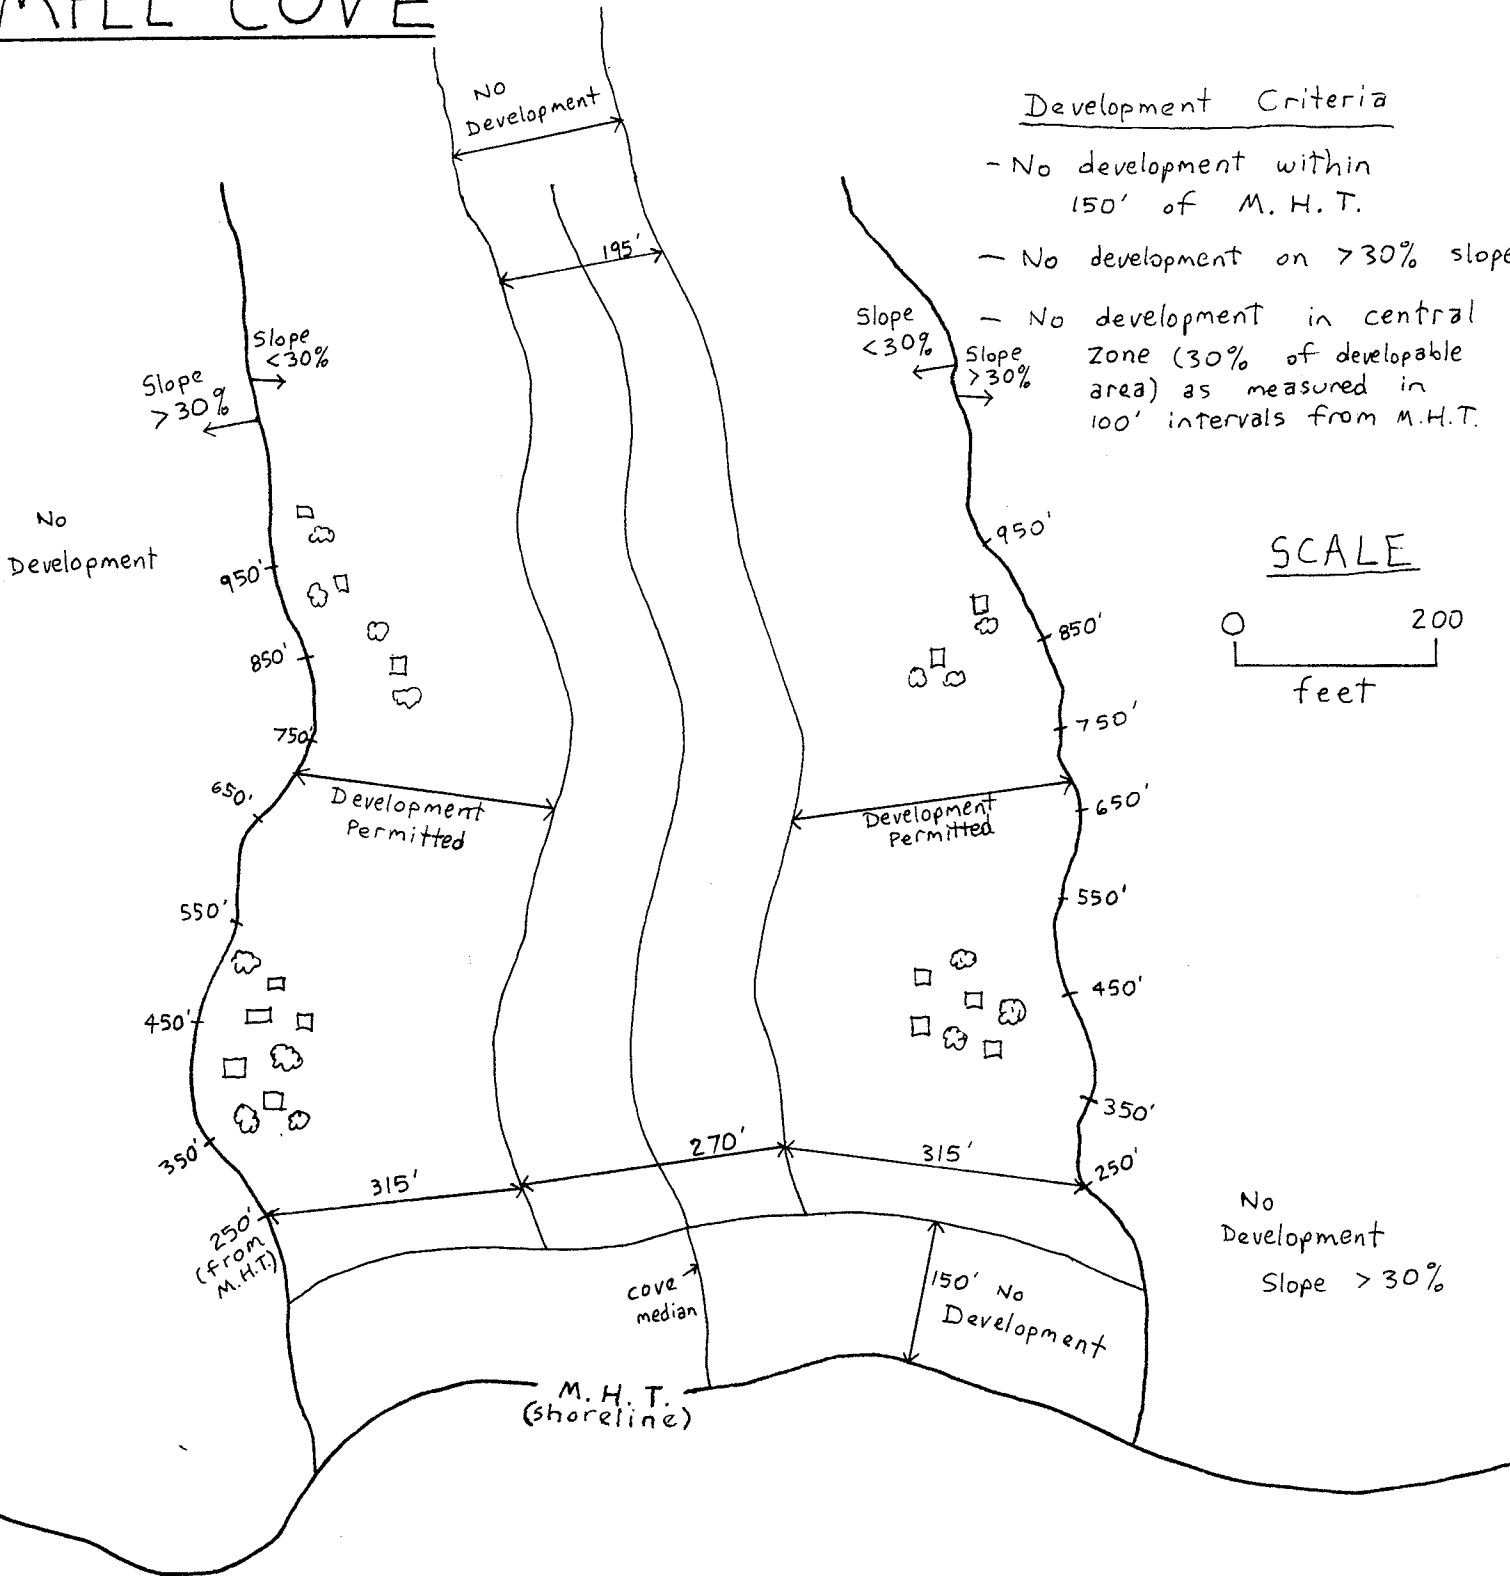 MILL COVE
No
Development
Development Criteria
- No development within
150' of M. H. T.
- No development on >30% slope
- No development in central
zone (30% of developable
area) as measured in
100' intervals from M.H.T.
195'
Slope
<30%
Slope
>30%
Slope
<30%
Slope
>30%
No
Development
950'
850'
750'
650'
550'
450'
350'
250'
(from
M.H.T.)
950'
850'
750'
650'
550'
450'
350'
250'
SCALE
0 200
feet
Development
Permitted
Development
Permitted
315'
270'
315'
No
Development
Slope > 30%
cove
median
150' No
Development
M. H. T.
(shoreline)